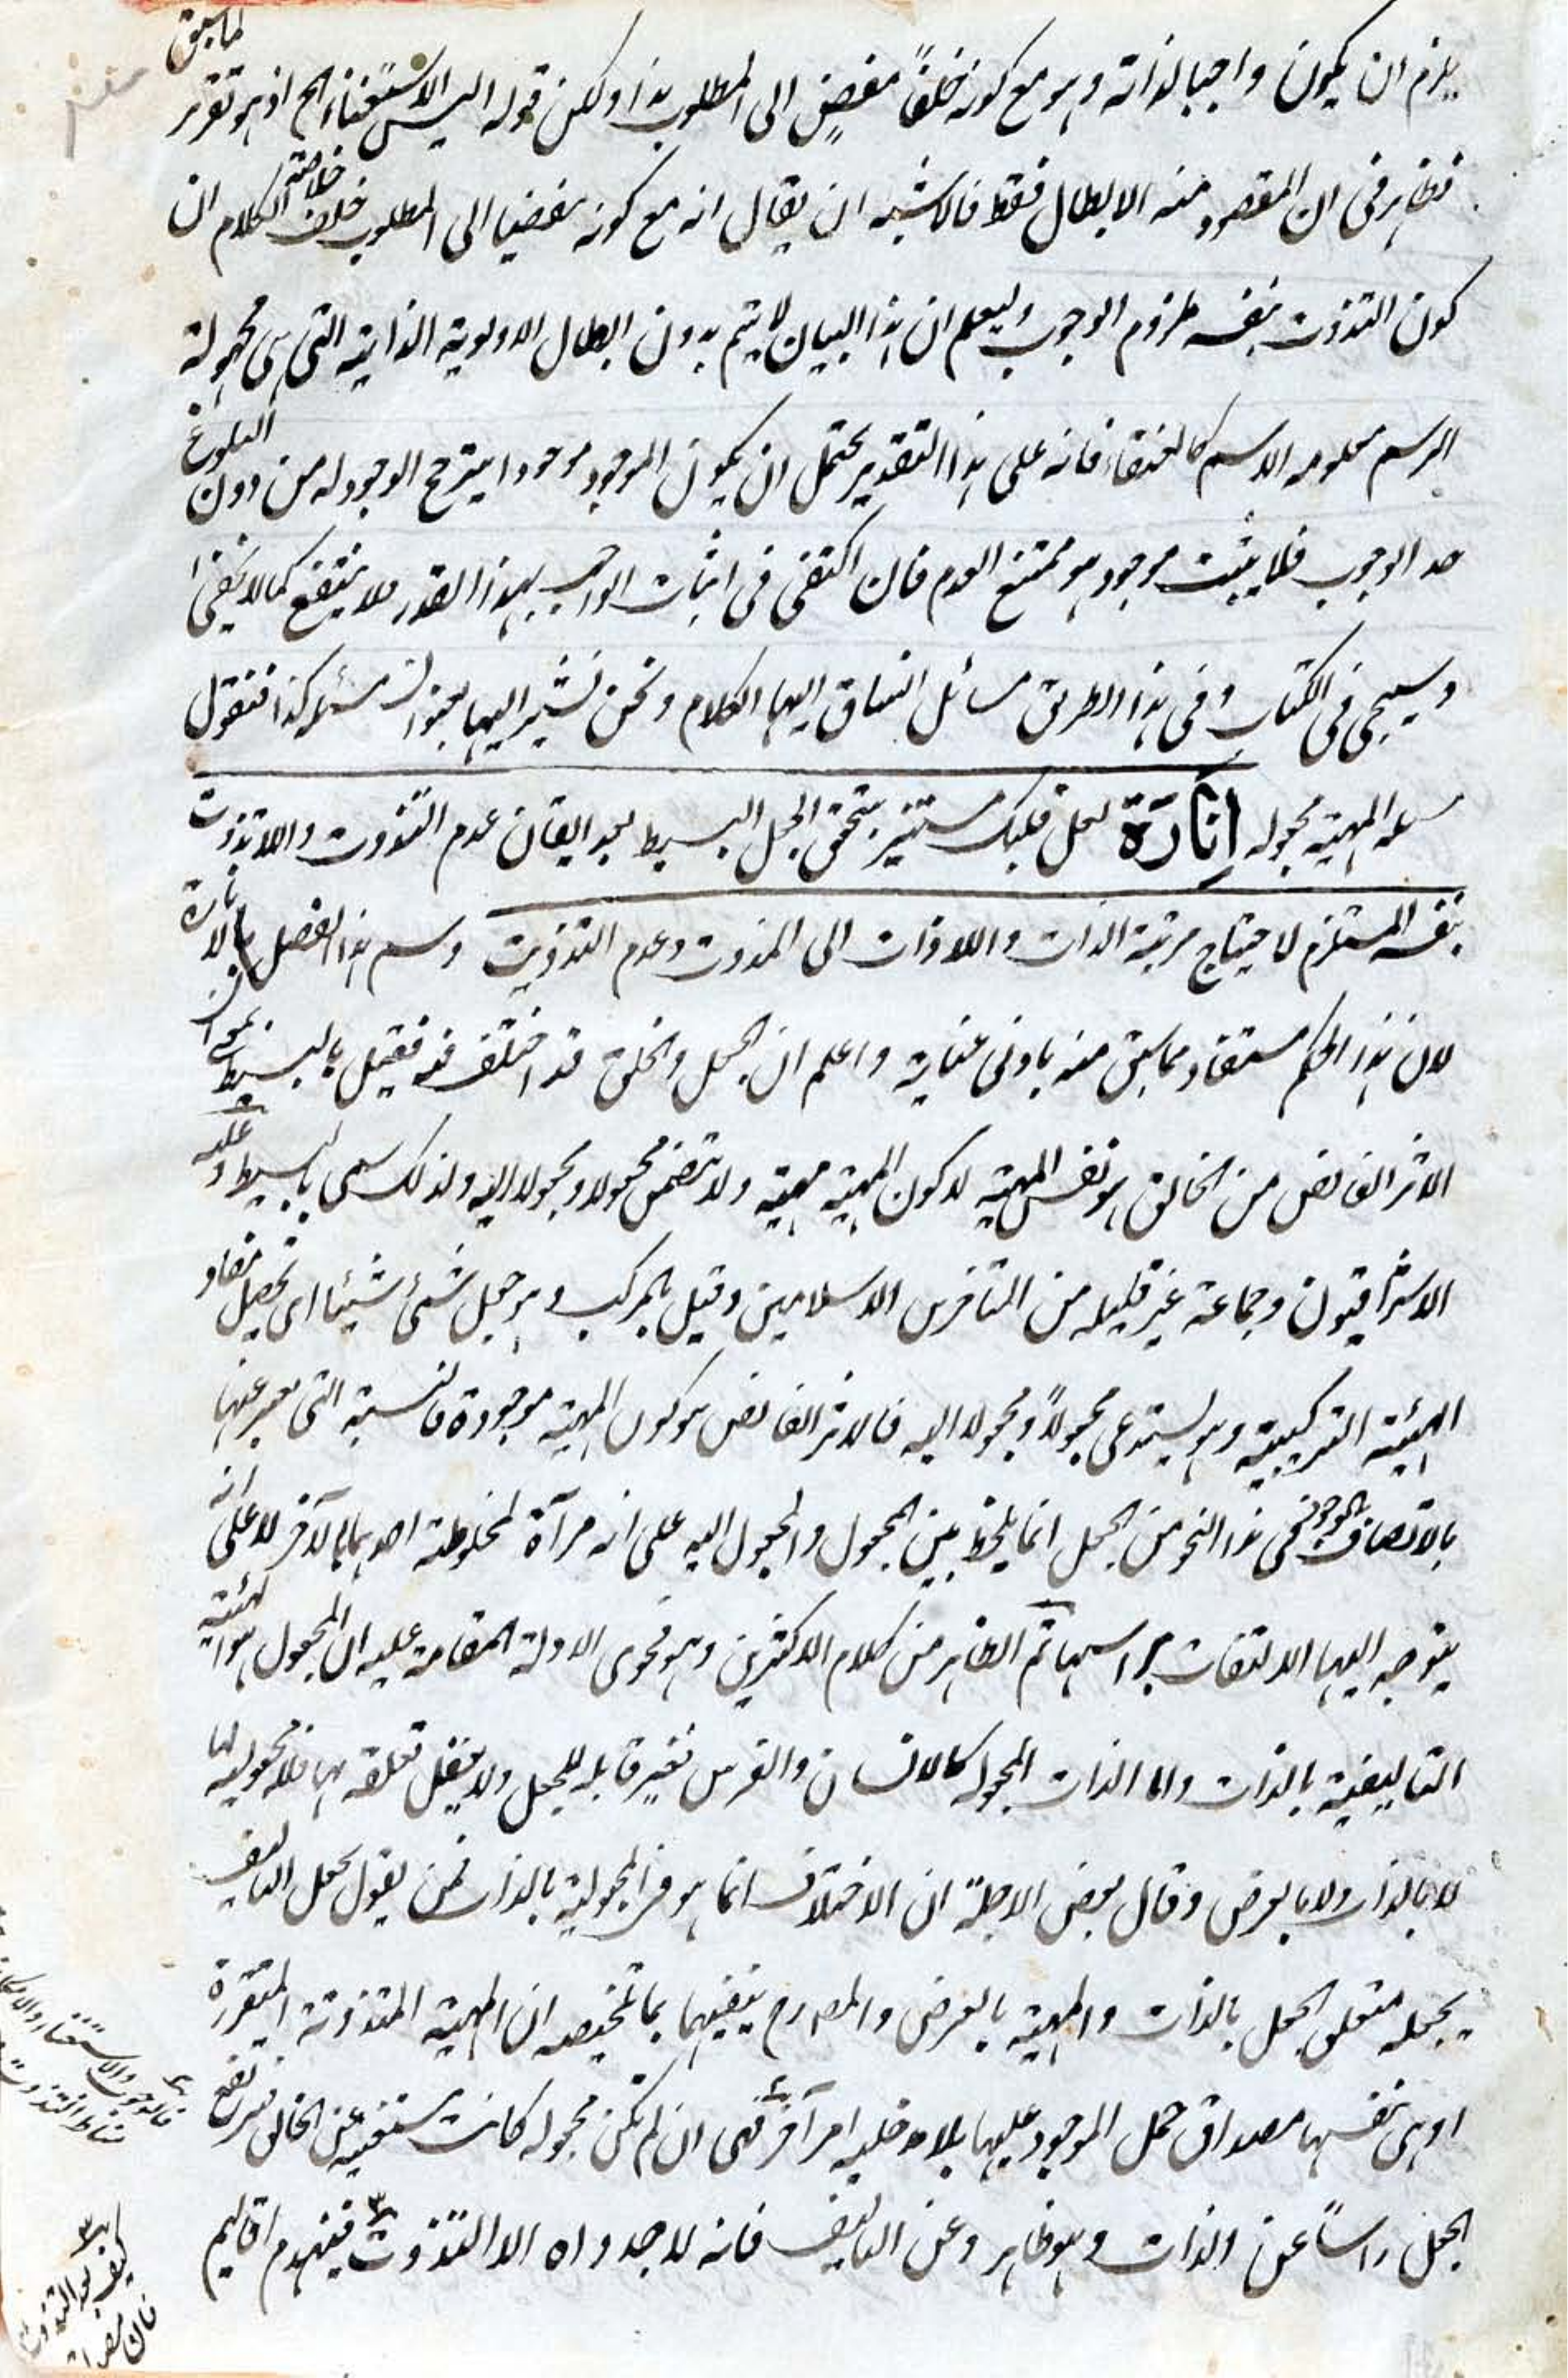 يلزم ان يكون واجبا لذاته وهو مع كونه خلفاً مفضٍ الى المطلوب هذا ولكن قوله اليس الاستغناء الخ اذ هو تقرير لما سبق
فظاهر فى ان المقصود منه الابطال فقط فالاشبه ان يقال انه مع كونه مفضيا الى المطلوب خلف خلاصة الكلام ان
كون التذوت بنفسه ملزوم الوجوب وليعلم ان هذا البيان لا يتم بدون ابطال الاولوية الذاتية التى هى مجهولة
الرسم معلومه الاسم كالعنقاء فانه على هذا التقدير يحتمل ان يكون الموجود موجودا يترجح الوجود له من دون البلوغ
حد الوجوب فلا يثبت موجود هو ممتنع العدم فان اكتفى فى اثبات الواجب بهذا القدر فلا ينتفع كما لا يخفى
وسيجى فى الكتاب وفى هذا الطريق مسائل انساق اليها الكلام ونحن نشير اليها بعنوان مسئله كذا فنقول
مسئله المهية مجعوله انارة لعل قلبك مستنير بتحقق الجعل البسيط بعد ايقان عدم التذوت واللاتذوت
بنفسه المستلزم لاحتياج مرتبة الذات واللاذات الى المذوت وعدم التذويت وسم هذا الفصل بالانارة
لان هذا الحكم مستفاد مما سبق منه بادنى عناية واعلم ان الجعل والخلق قد اختلف فيه فقيل بالبسيط بمعنى ان
الاثر الفائض من الخالق هو نفس المهية لا كون المهية مهية ولا يتضمن مجعولا ومجعولا اليه ولذلك سمى بالبسيط وعليه
الاشراقيون وجماعة غير قليله من المتاخرين الاسلاميين وقيل بالمركب وهو جعل شئ شيئا اى تحصيل مفاد
الهيئة التركيبية وهو يستدعى مجعولاً ومجعولا اليه فالاثر الفائض هو كون المهية موجودة فالنسبة التى يعبر عنها
بالاتصاف بالوجود فى هذا النحو من الجعل انما يلحظ بين المجعول والمجعول اليه على انه مرآة لمخلوطية احدهما بالآخر لا على انه
يتوجه اليها الالتفات براسها ثم الظاهر من كلام الاكثرين وهو فحوى الادلة المقامة عليه ان المجعول هو الهيئة
التاليفية بالذات واما الذات المجعوله كالانسان والفرس فغير قابله للجعل ولا يعقل تعلقه بها فلا مجعولية لها
لا بالذات ولا بالعرض وقال بعض الاجلة ان الاختلاف انما هو فى المجعولية بالذات فمن يقول بجعل التاليف
يجعله متعلق الجعل بالذات والمهية بالعرض والمصدرح ينفيهما بما تلخيصه ان المهية المتذوتة المتقررة
او هى بنفسها مصداق حمل الموجود عليها بلا مدخلية امر آخر فهى ان لم تكن مجعوله كانت مستغنيه عن الخالق فيرتفع
الجعل راساً عن الذات وهو ظاهر وعن التاليف فانه لاجدواه الا التذوت فينهدم اقاليم
فالوجوب والاستغناء
مناط التذوت
كيف بعد التذوت